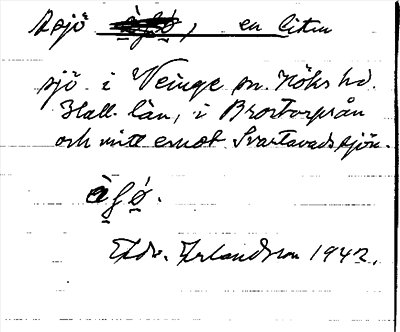 Asjö, en liten
sjö i Veinge sn. Höks hd.
Hall. län, i Brostorpsån
och mitt emot Svartavadsjön.
Edv. Erlandsson 1942.